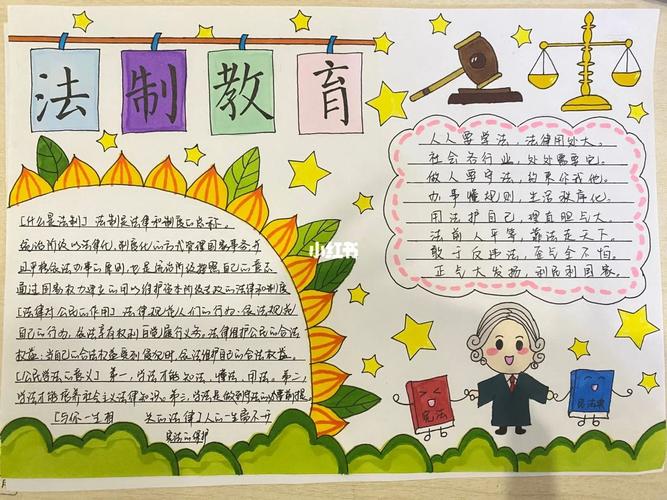 法制教育
人人要学法，法律用处大。
社会各行业，处处需要它。
做人要守法，约束你我他。
办事懂规则，生活秩序化。
用法护自己，理直胆气大。
法前人平等，靠法走天下。
敢于反违法，歪气全不怕。
正气大发扬，利民利国家。
[什么是法制]法制是法律和制度的总称。
统治阶级以法律化、制度化的方式管理国家事务并
且严格依法办事的原则，也是统治阶级按照自己的意志
通过国家权力建立的用以维护本阶级专政的法律和制度
[法律对公民的作用]法律规范人们的行为，依法规范
自己的行为，依法享有权利自觉履行义务。法律维护公民的合法
权益，当自己合法权益受到侵犯时，依法维护自己的合法权益。
[公民学法的意义]第一，学法才能知法、懂法、用法。第二，
学法才能培养社会主义法律意识。第三，学法是做到守法的必要前提。
[与你一生相 关的法律]人的一生离不开
民法的保护
小红书
民法
民法典